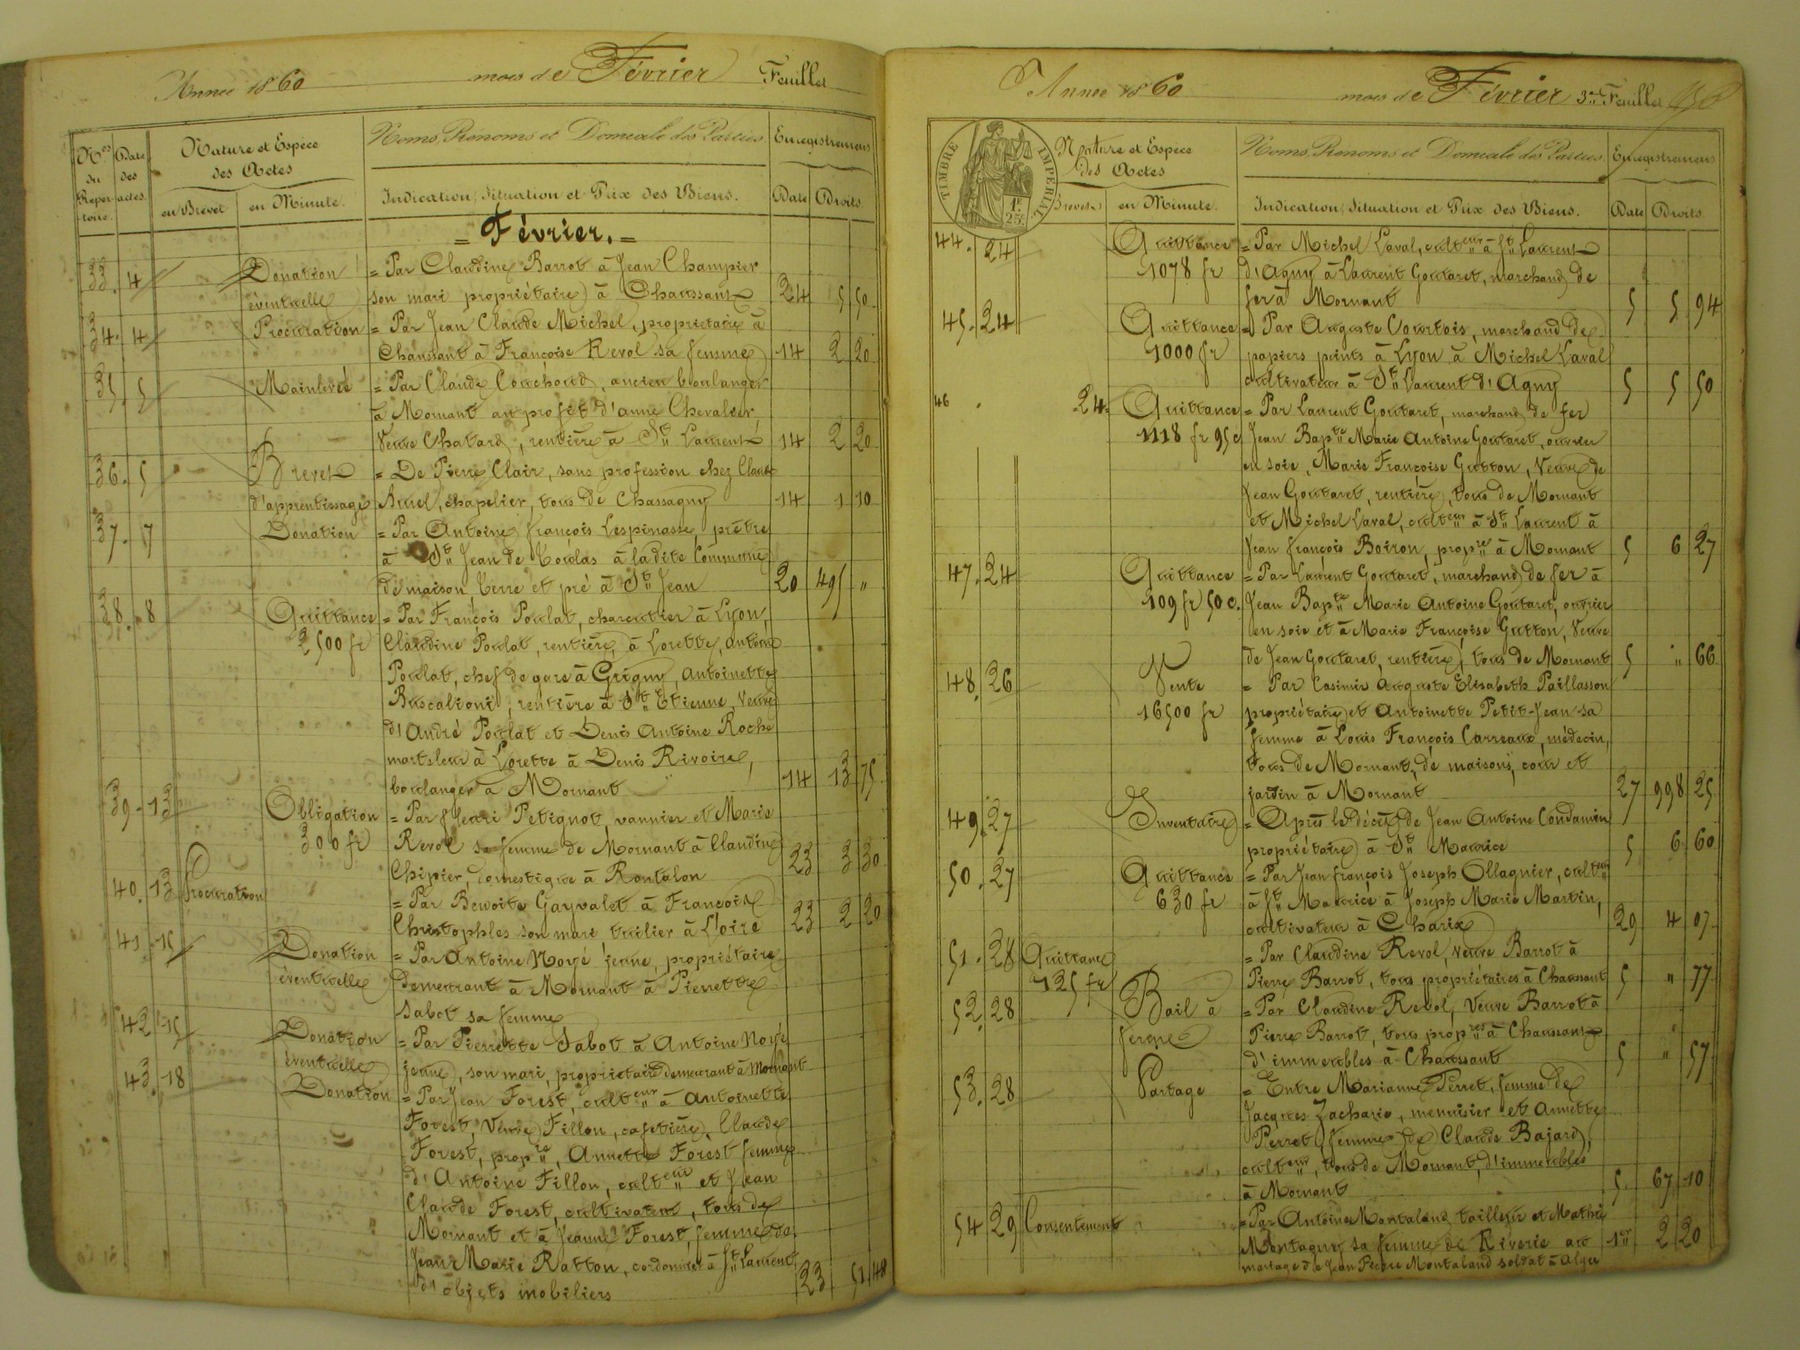 Année 1860 mois de Février Feuillet
Nos du Répertoire. Date des actes. Nature et Espèce des Actes en Brevet en Minute. Noms, Prenoms et Domicile des Parties Indication, Situation et Prix des Biens. Enregistrement Date Droits
= Février. =
33. 4 Donation = Par Claudine Barrot à Jean Champier
éventuelle son mari propriétaire à Chaussant 24 5 50
34. 4 Procuration = Par Jean Claude Michel, propriétaire à
Chaussant à Françoise Revol sa femme 14 2 20
35. 5 Mainlevée = Par Claude Couchoud, ancien boulanger
à Mornant au profit d'anne Chevalier
Veuve Chatard, rentière à St Laurent 14 2 20
36. 5 Brevet = De Pierre Clair, sans profession chez Claude
d'apprentissage chapelier, tous de Chassagny 14 1 10
37. 7 Donation = Par Antoine françois Lespinasse, prêtre
à St Jean de Toulas à ladite Commune
de maison, terre et pré à St Jean 20 495 "
38. 8 Quittance = Par François Poulat, charcutier à Lyon,
2500 fr Claudine Poulat, rentière, à Lorette, antoine
Poulat, chef de gare à Grigny, Antoinette
Buscalioni, rentière à St Etienne, Veuve
d'André Poulat et Denis Antoine Roche
marteleur à Lorette à Denis Rivoire,
boulanger à Mornant 14 13 75
39. 13 Obligation = Par Henri Petignot, vannier et Marie
300 fr Revol sa femme de Mornant à Claudine
Chipier, domestique à Rontalon 23 3 30
40. 13 Procuration = Par Benoite Gayvalet à François
Christophles son mari tuilier à L'oire 23 2 20
41. 15 Donation = Par Antoine Noyé jeune, propriétaire
éventuelle Demeurant à Mornant à Pierrette
Sabot sa femme
42. 15 Donation = Par Pierrette Sabot à Antoine Noyé
éventuelle jeune, son mari, propriétaire demeurant à Mornant
43. 18 Donation = Par Jean Forest, culteur à Antoinette
Forest, Veuve Fillon, cafetière, Claude
Forest, propre, Annette Forest femme
d'Antoine Fillon, culteur et Jean
Claude Forest, cultivateur, tous de
Mornant et à Jeanne Forest, femme de
Jean Marie Ratton, cordonnier à St Laurent
d'objets mobiliers 23 51 48
Année 1860 mois de Février 3e Feuillet
TIMBRE IMPERIAL 1f. 25c.
Nature et Espèce des Actes Brevet en Minute. Noms, Prenoms et Domicile des Parties Indication, Situation et Prix des Biens. Enregistrement Date Droits
44. 24 Quittance = Par Michel Laval, culteur à St Laurent
1078 fr d'Agny à Laurent Goutaret, marchand de
fer à Mornant 5 5 94
45. 24 Quittance = Par Auguste Courtois, marchand de
1000 fr papiers peints à Lyon à Michel Laval
cultivateur à St Laurent d'Agny 5 5 50
46 24. Quittance = Par Laurent Goutaret, marchand de fer
1118 fr 95 c Jean Bapte Marie Antoine Goutaret, ouvrier
en soie, Marie Françoise Gutton, Veuve de
Jean Goutaret, rentière, tous de Mornant
et Michel Laval, culteur à St Laurent à
Jean françois Boiron, propre à Mornant 5 6 27
47. 24 Quittance = Par Laurent Goutaret, marchand de fer à
109 fr 50 c. Jean Bapte Marie Antoine Goutaret, ouvrier
en soie et à Marie Françoise Gutton, Veuve
de Jean Goutaret, rentière, tous de Mornant 5 " 66
48. 26 Vente = Par Casimir auguste Elisabeth Paillasson
16500 fr propriétaire et Antoinette Petit-Jean sa
femme à Louis François Carreaux, médecin,
tous de Mornant, de maisons, cour et
jardin à Mornant 27 998 25
49. 27 Inventaire = Après le décès de Jean Antoine Condamin
propriétaire à St Maurice 5 6 60
50. 27 Quittance = Par Jean françois Joseph Ollagnier, culteur
630 fr à St Maurice à Joseph Marie Martin,
cultivateur à Charix 29 4 07
51. 28 Quittance = Par Claudine Revol, veuve Barrot à
135 fr Pierre Barrot, tous propriétaires à Chaussant 5 " 77
52. 28 Bail à = Par Claudine Revol, Veuve Barrot à
ferme Pierre Barrot, tous propres à Chaussant
d'immeubles à Chaussant 5 " 57
53. 28 Partage = Entre Marianne Perret, femme de
Jacques Zacharie, menuisier et Annette
Perret, femme de Claude Bajard,
culteur, tous de Mornant, d'immeubles
à Mornant 5. 67 10
54 29 Consentement = Par Antoine Montaland, tailleur et Mathie
Montagny sa femme de Riverie au 1er 2 20
mariage de Jean Pierre Montaland soldat à Alger